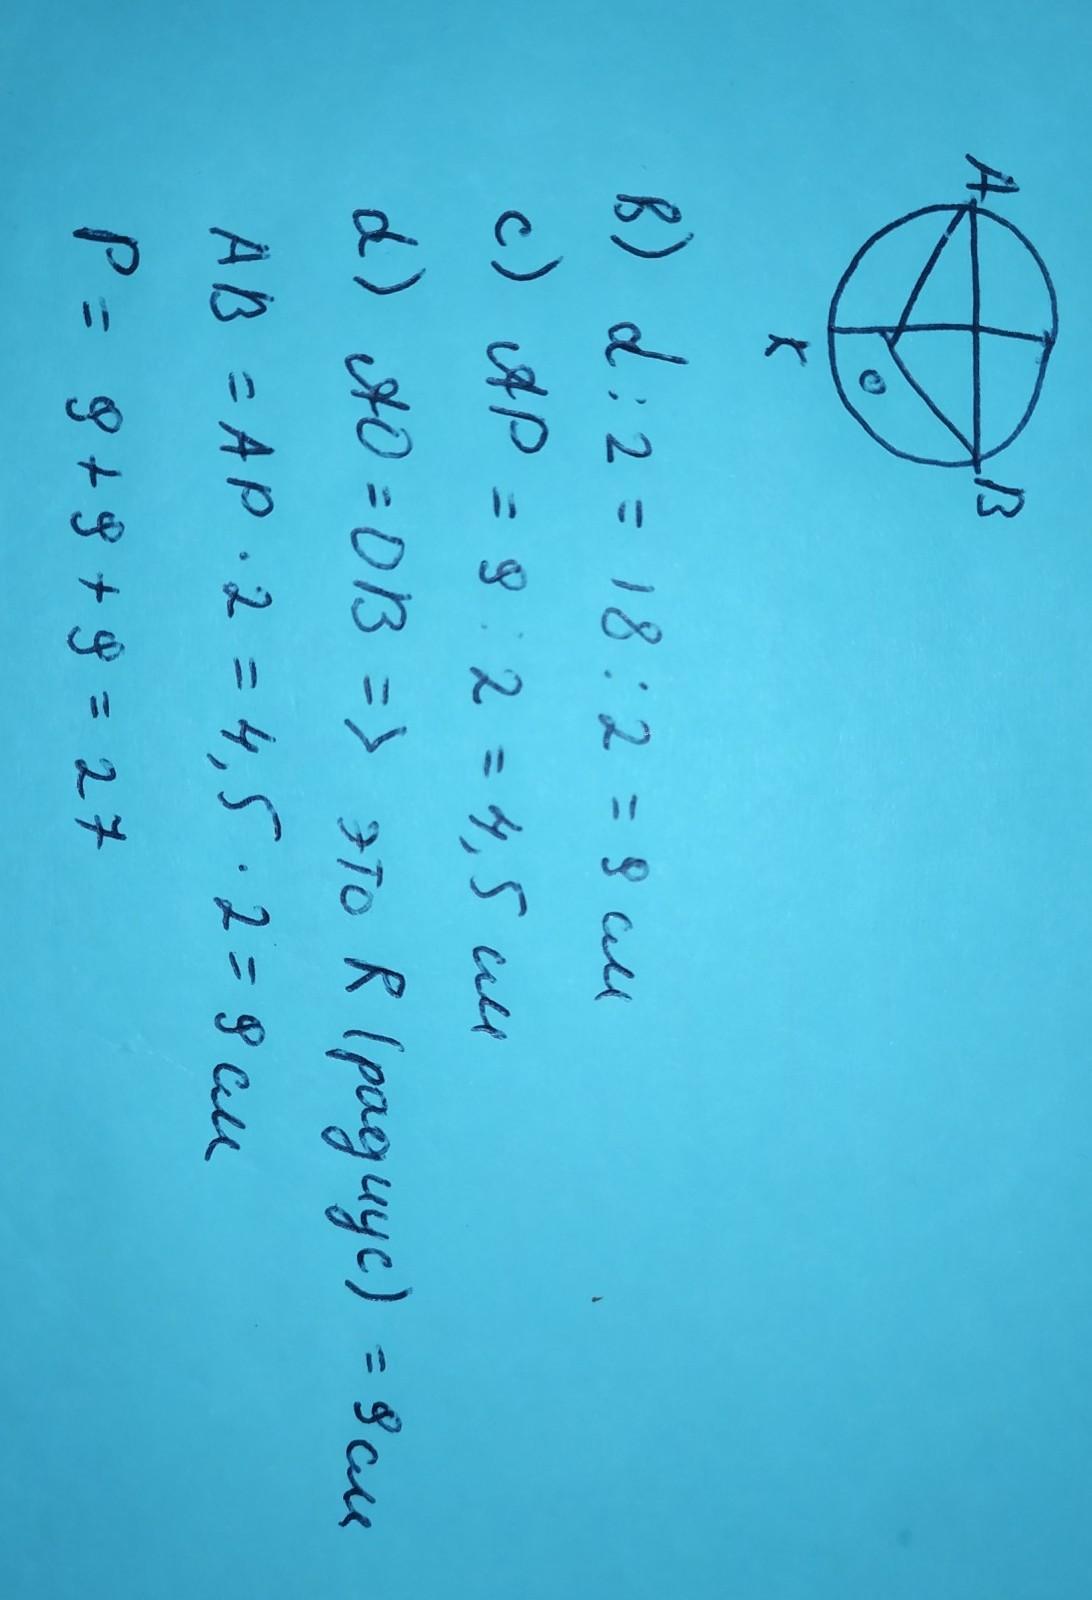 A
B
O
K
B) d : 2 = 18 : 2 = 9 см
c) AP = 9 : 2 = 4,5 см
d) AO = OB => это R (радиус) = 9 см
AB = AP · 2 = 4,5 · 2 = 9 см
P = 9 + 9 + 9 = 27